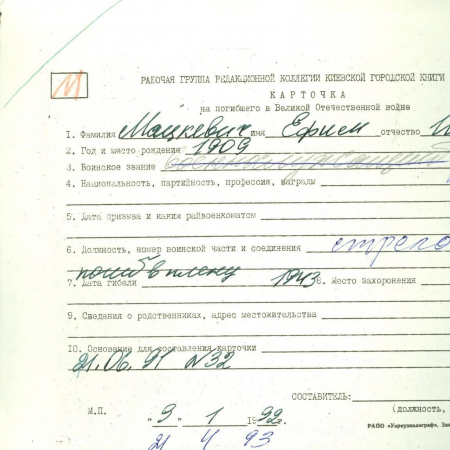 М
РАБОЧАЯ ГРУППА РЕДАКЦИОННОЙ КОЛЛЕГИИ КИЕВСКОЙ ГОРОДСКОЙ КНИГИ
КАРТОЧКА
на погибшего в Великой Отечественной войне
1. Фамилия Мацкевич имя Ефрем отчество
2. Год и место рождения 1909
3. Воинское звание военнослужащий
4. Национальность, партийность, профессия, награды
5. Дата призыва и каким райвоенкоматом
6. Должность, номер воинской части и соединения
погиб в плену
7. Дата гибели 1943 8. Место захоронения
9. Сведения о родственниках, адрес местожительства
10. Основание для составления карточки
21.06.91 N32
СОСТАВИТЕЛЬ:
(должность,
М.П. "9" 1 1992г.
РАПО «Укрвузполиграф». Зак
21 4 93